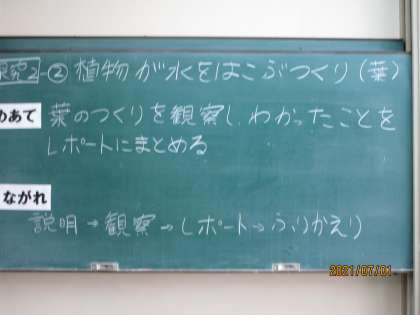 探究2-② 植物が水をはこぶつくり(葉)
めあて 葉のつくりを観察し、わかったことを
レポートにまとめる
ながれ
説明→観察→レポート→ふりかえり
2021/07/01